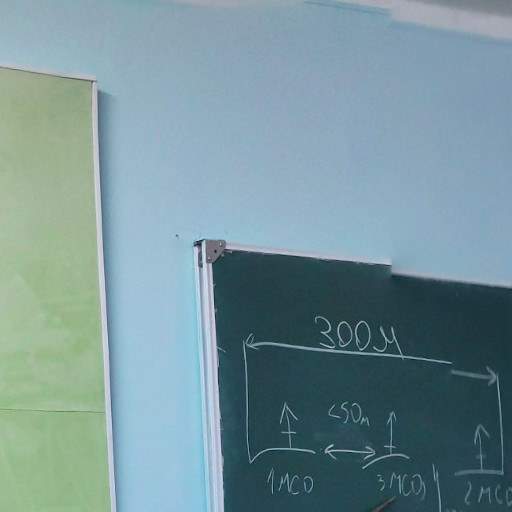 300м
<50м
1МСО 3МСО, 2МСО